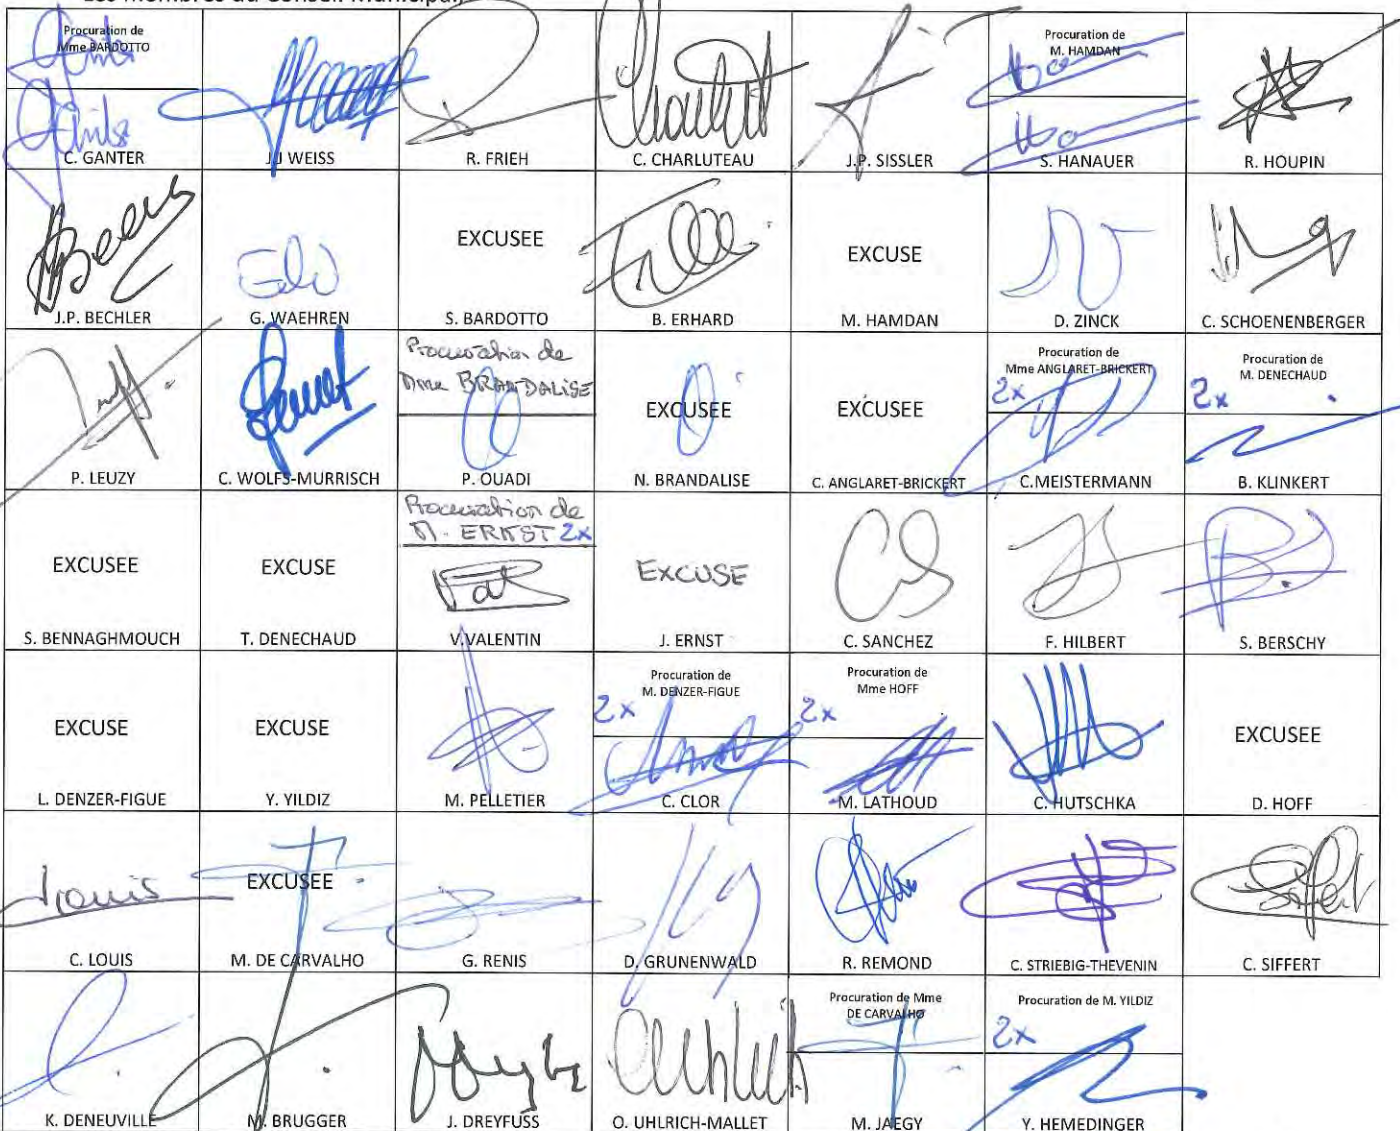 Les membres du Conseil Municipal,
Procuration de
Mme BARDOTTO
C. GANTER
JJ WEISS
R. FRIEH
C. CHARLUTEAU
J.P. SISSLER
Procuration de
M. HAMDAN
S. HANAUER
R. HOUPIN
J.P. BECHLER
G. WAEHREN
EXCUSEE
S. BARDOTTO
B. ERHARD
EXCUSE
M. HAMDAN
D. ZINCK
C. SCHOENENBERGER
P. LEUZY
C. WOLFS-MURRISCH
Procuration de
Mme BRANDALISE
P. OUADI
EXCUSEE
N. BRANDALISE
EXCUSEE
C. ANGLARET-BRICKERT
Procuration de
Mme ANGLARET-BRICKERT
2x
C.MEISTERMANN
Procuration de
M. DENECHAUD
2x
B. KLINKERT
EXCUSEE
S. BENNAGHMOUCH
EXCUSE
T. DENECHAUD
Procuration de
M. ERNST 2x
V.VALENTIN
EXCUSE
J. ERNST
C. SANCHEZ
F. HILBERT
S. BERSCHY
EXCUSE
L. DENZER-FIGUE
EXCUSE
Y. YILDIZ
M. PELLETIER
Procuration de
M. DENZER-FIGUE
2x
C. CLOR
Procuration de
Mme HOFF
2x
M. LATHOUD
C. HUTSCHKA
EXCUSEE
D. HOFF
Louis
C. LOUIS
EXCUSEE
M. DE CARVALHO
G. RENIS
D. GRUNENWALD
R. REMOND
C. STRIEBIG-THEVENIN
C. SIFFERT
K. DENEUVILLE
M. BRUGGER
J. DREYFUSS
O. UHLRICH-MALLET
Procuration de Mme
DE CARVALHO
M. JAEGY
Procuration de M. YILDIZ
2x
Y. HEMEDINGER